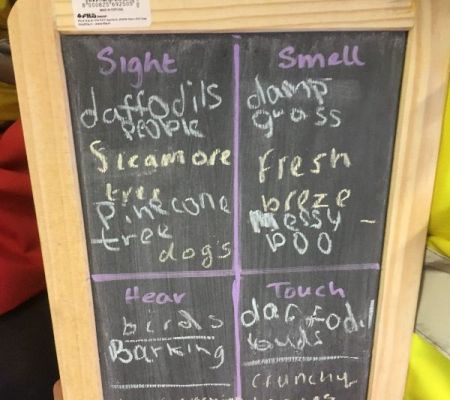 Sight
daffodils
people
Sicamore
tree
Pinecone
tree
dogs
Smell
damp
grass
fresh
breze
messy
poo
Hear
birds
Barking
Touch
daffodil
buds
crunchy